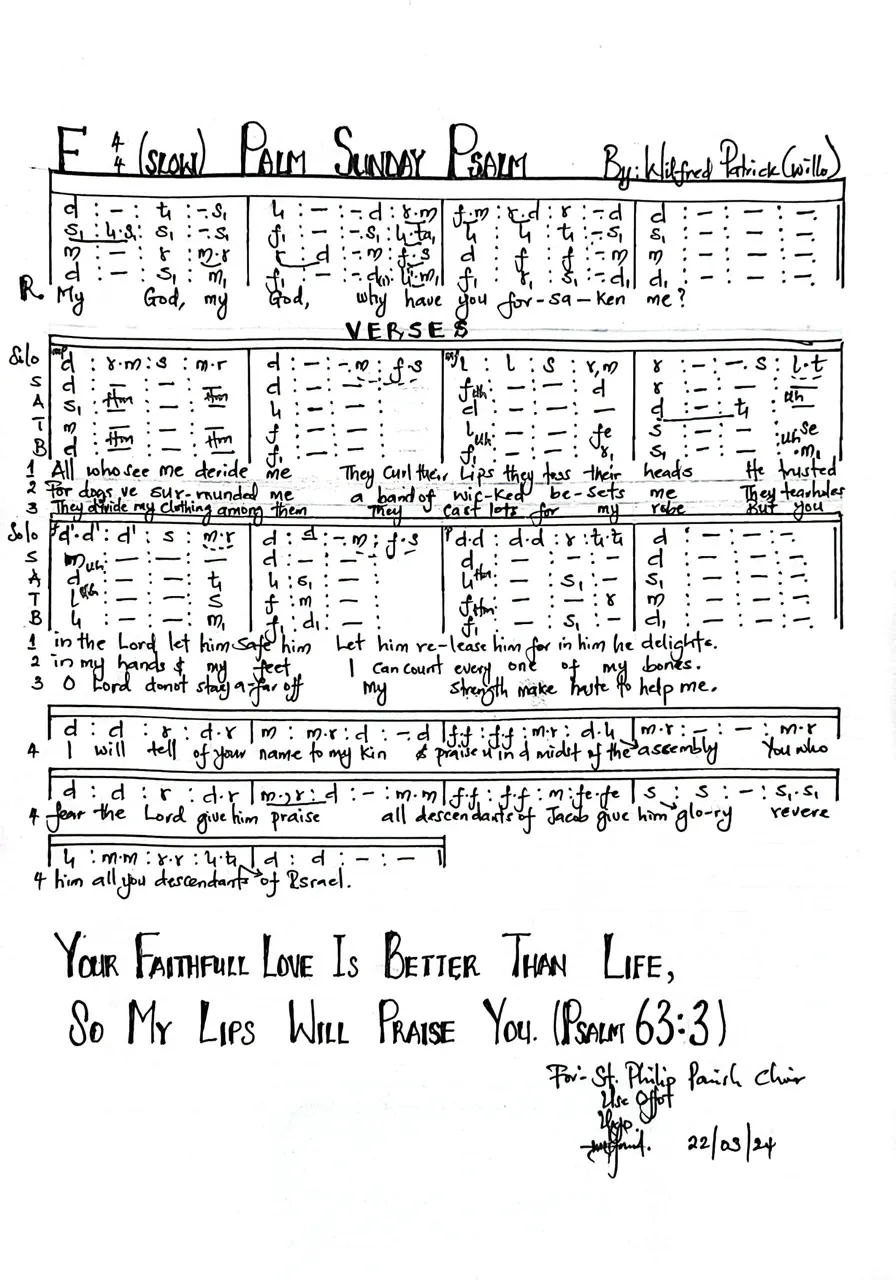 F 4/4 (SLOW) PALM SUNDAY PSALM By: Wilfred Patrick (willo)
d : - : t₁ : -. s₁ | l₁ : - : -. d : r.m | f.m : r.d : r : -. d | d : - : - : -.
s₁ : l₁.s₁ : s₁ : -. s₁ | f₁ : - : -. s₁ : l₁.ta₁ | l₁ : l₁ : t₁ : -. s₁ | s₁ : - : - : -.
m : - : r : m.r | r : d : -. m : f.s | d : f : f : -. m | m : - : - : -.
d : - : s₁ : m₁ | f₁ : - : -. d₁ : | f₁ : r₁ : s₁ : -. d₁ | d₁ : - : - : -.
R. My God, my God, why have you for-sa-ken me?
VERSES
Solo mp d : r.m : s : m.r | d : - : -. m : f.s | mf l : l : s : r,m | r : - : -. s : l.t
S d : - : - : - | d : - : - : | f uh : - : - : d | r : - : - : uh
A s₁ Hm : - : - Hm | l₁ : - : - : | d : - : - : - | d : - : t₁ :
T m : - : - : - | f : - : - : | l uh : - : - : fe | s : - : - : uh se
B d Hm : - : - Hm | f₁ : - : - : | f₁ : - : - : r₁ | s₁ : - : - : . m₁
1 All who see me deride me They Curl their Lips they toss their heads He trusted
2 For dogs 've sur-rounded me a band of wic-ked be-sets me They tearholes
3 They divide my clothing among them They cast lots for my robe But you
Solo f d'.d' : d' : s : m.r | d : d : -. m : f.s | p d.d : d.d : r : t₁.t₁ | d : - : - : -.
S m uh : - : - : - | d : - : - : | d : - : - : - | d : - : - : -.
A d : - : - : t₁ | l₁ : s₁ : - : | l₁ Hm : - : s₁ : - | s₁ : - : - : -.
T l uh : - : - : s | f : m : - : | f Hm : - : - : r | m : - : - : -.
B l₁ : - : - : m₁ | f₁ : d₁ : - : | f₁ : - : s₁ : - | d₁ : - : - : -.
1 in the Lord let him safe him Let him re-lease him for in him he delights.
2 in my hands & my feet I can count every one of my bones.
3 O Lord donot stay a-far off My strength make haste to help me.
d : d : r : d.r | m : m.r : d : -. d | f.f : f.f : m.r : d.l₁ | m.r : - : - : m.r |
4 I will tell of your name to my kin & praise u in d midst of the assembly You who
d : d : r : d.r | m.,r : d : - : m.m | f.f : f.f : m : fe.fe | s : s : - : s₁.s₁ |
4 fear the Lord give him praise all descendants of Jacob give him glo-ry revere
l₁ : m.m : r.r : l₁.t₁ | d : d : - : - |
4 him all you descendants of Israel.
YOUR FAITHFULL LOVE IS BETTER THAN LIFE,
SO MY LIPS WILL PRAISE YOU. (PSALM 63:3)
For:- St. Philip Parish Choir
Use Offot
22/03/24